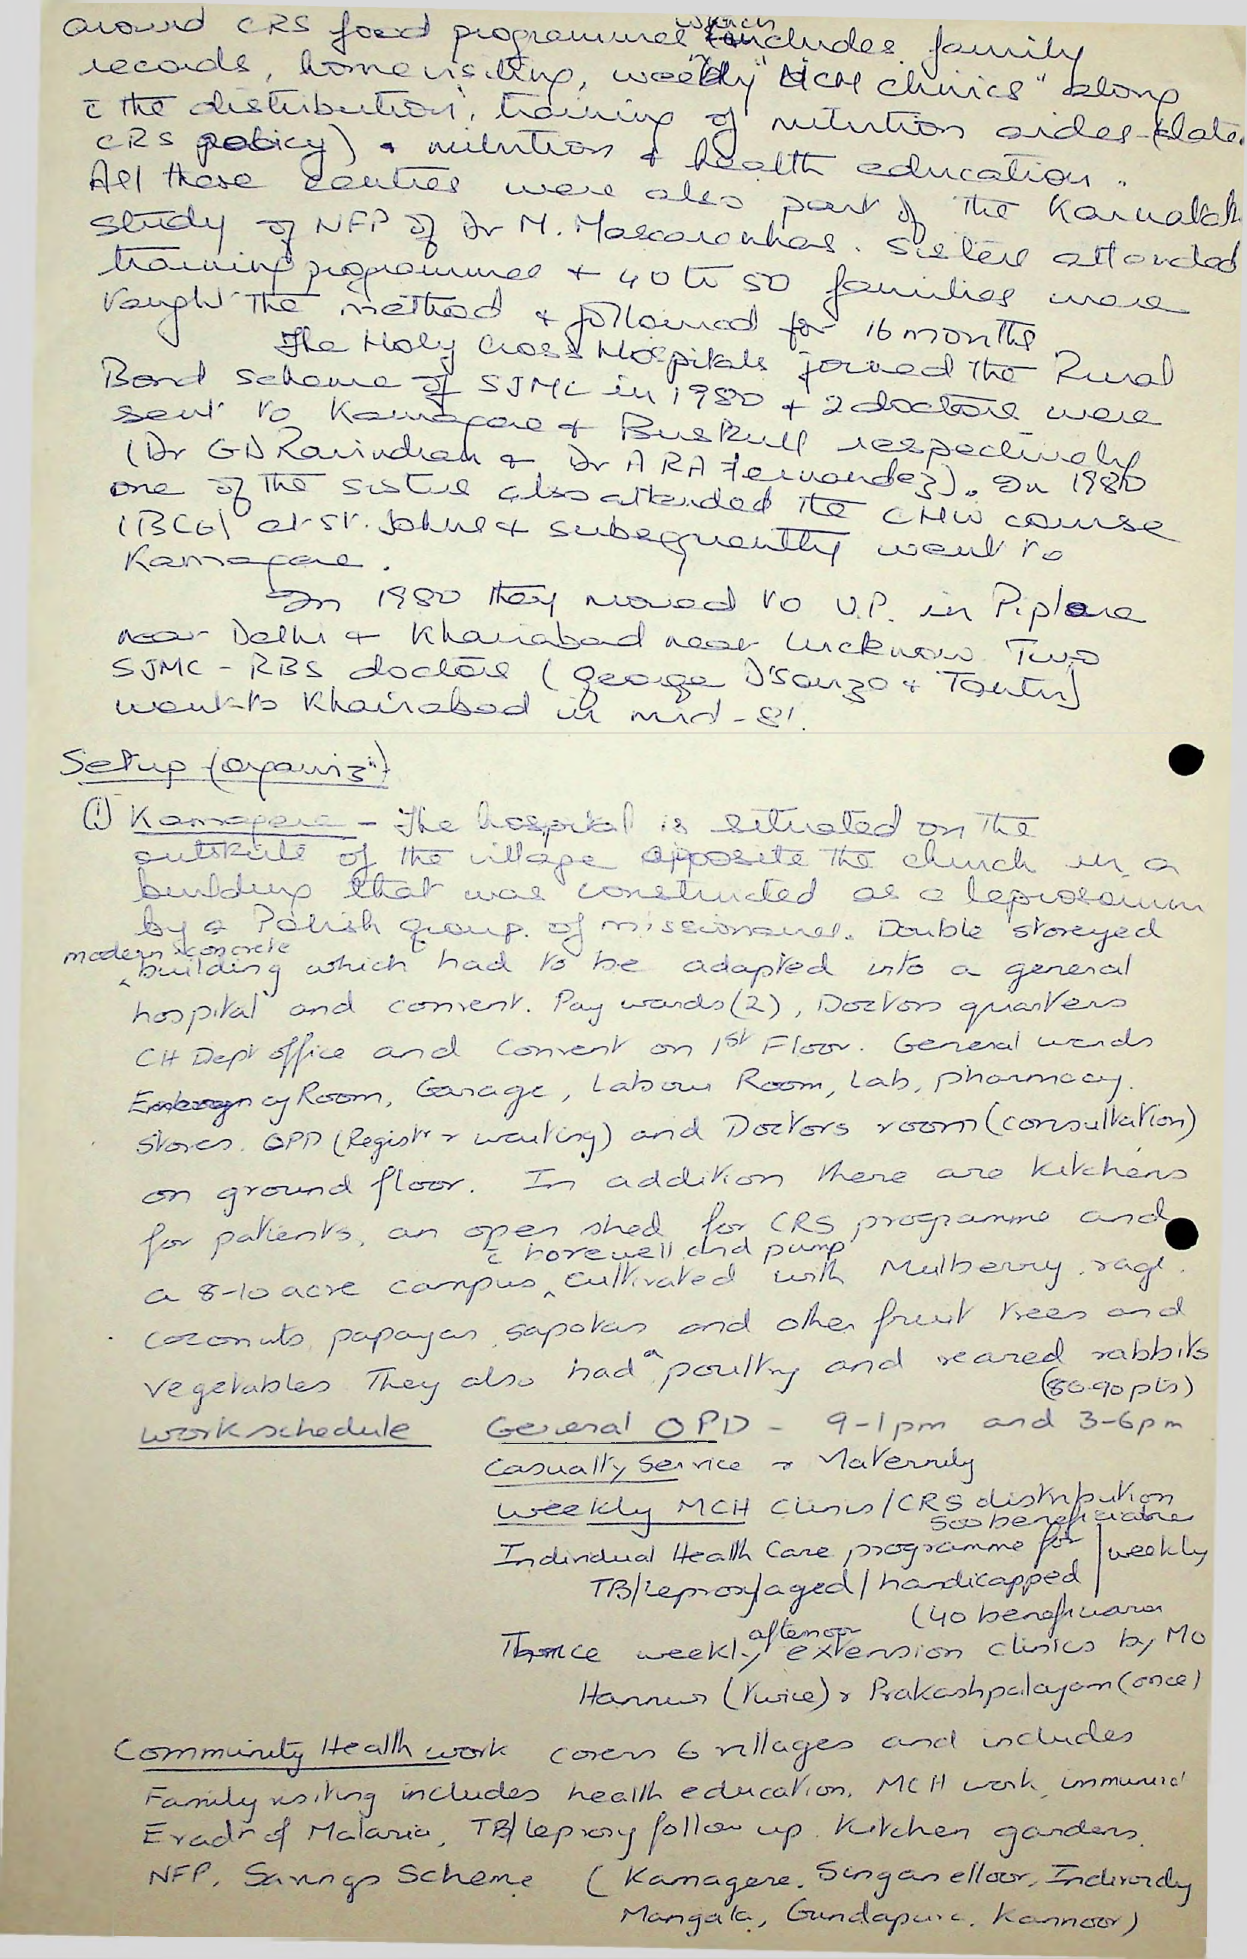 around CRS food programmes which includes family
records, home visiting, weekly "MCH clinics" along
c̄ the distribution, training of nutrition aides (later
CRS policy) & nutrition & health education.
All these centres were also part of the Karnataka
study of NFP of Dr M. Mascarenhas. Sisters attended
training programmes & 40 to 50 families were
taught the method & followed for 16 months
The Holy Cross Hospitals joined the Rural
Bond scheme of SJMC in 1980 & 2 doctors were
sent to Kamagere & Buskull respectively
(Dr GD Ravindran & Dr ARA Fernandez). In 1980
one of the sisters also attended the CHW course
(BCG) at St. Johns & subsequently went to
Kamagere.
In 1980 they moved to U.P. in Piplana
near Delhi & Khairabad near Lucknow. Two
SJMC - RBS doctors (George D'Souza &
went to Khairabad in mid-81.
Setup (organizⁿ)
(1) Kamagere - The hospital is situated on the
outskirts of the village opposite the church in a
building that was constructed as a leprosarium
by a Polish group of missionaries. Double storeyed
modern concrete
building which had to be adapted into a general
hospital and convent. Pay wards (2), Doctors quarters
CH Dept office and Convent on 1st Floor. General wards
Emergency Room, Garage, Labour Room, Lab, pharmacy.
stores. OPD (Registr & waiting) and Doctors room (consultation)
on ground floor. In addition there are kitchens
for patients, an open shed for CRS programme and
c̄ borewell and pump
a 8-10 acre campus cultivated with Mulberry, ragi.
coconuts, papayas, sapotas and other fruit trees and
vegetables They also had a poultry and reared rabbits
(80-90 pts)
work schedule General OPD - 9-1pm and 3-6pm
Casualty Service & Maternity
Weekly MCH Clinics/CRS distribution
500 beneficiaries
Individual Health Care programme for | weekly
TB/Leprosy/aged/handicapped
(40 beneficiaries
Thrice weekly afternoon extension clinics by MO
Hannur (twice) & Prakashpalayam (once)
Community Health work covers 6 villages and includes
Family visiting includes health education, MCH work, immunizⁿ
Eradⁿ of Malaria, TB/Leprosy follow up. Kitchen gardens,
NFP, Savings Scheme (Kamagere, Singanelloor,
Mangala, Gundapura, Kannoor)